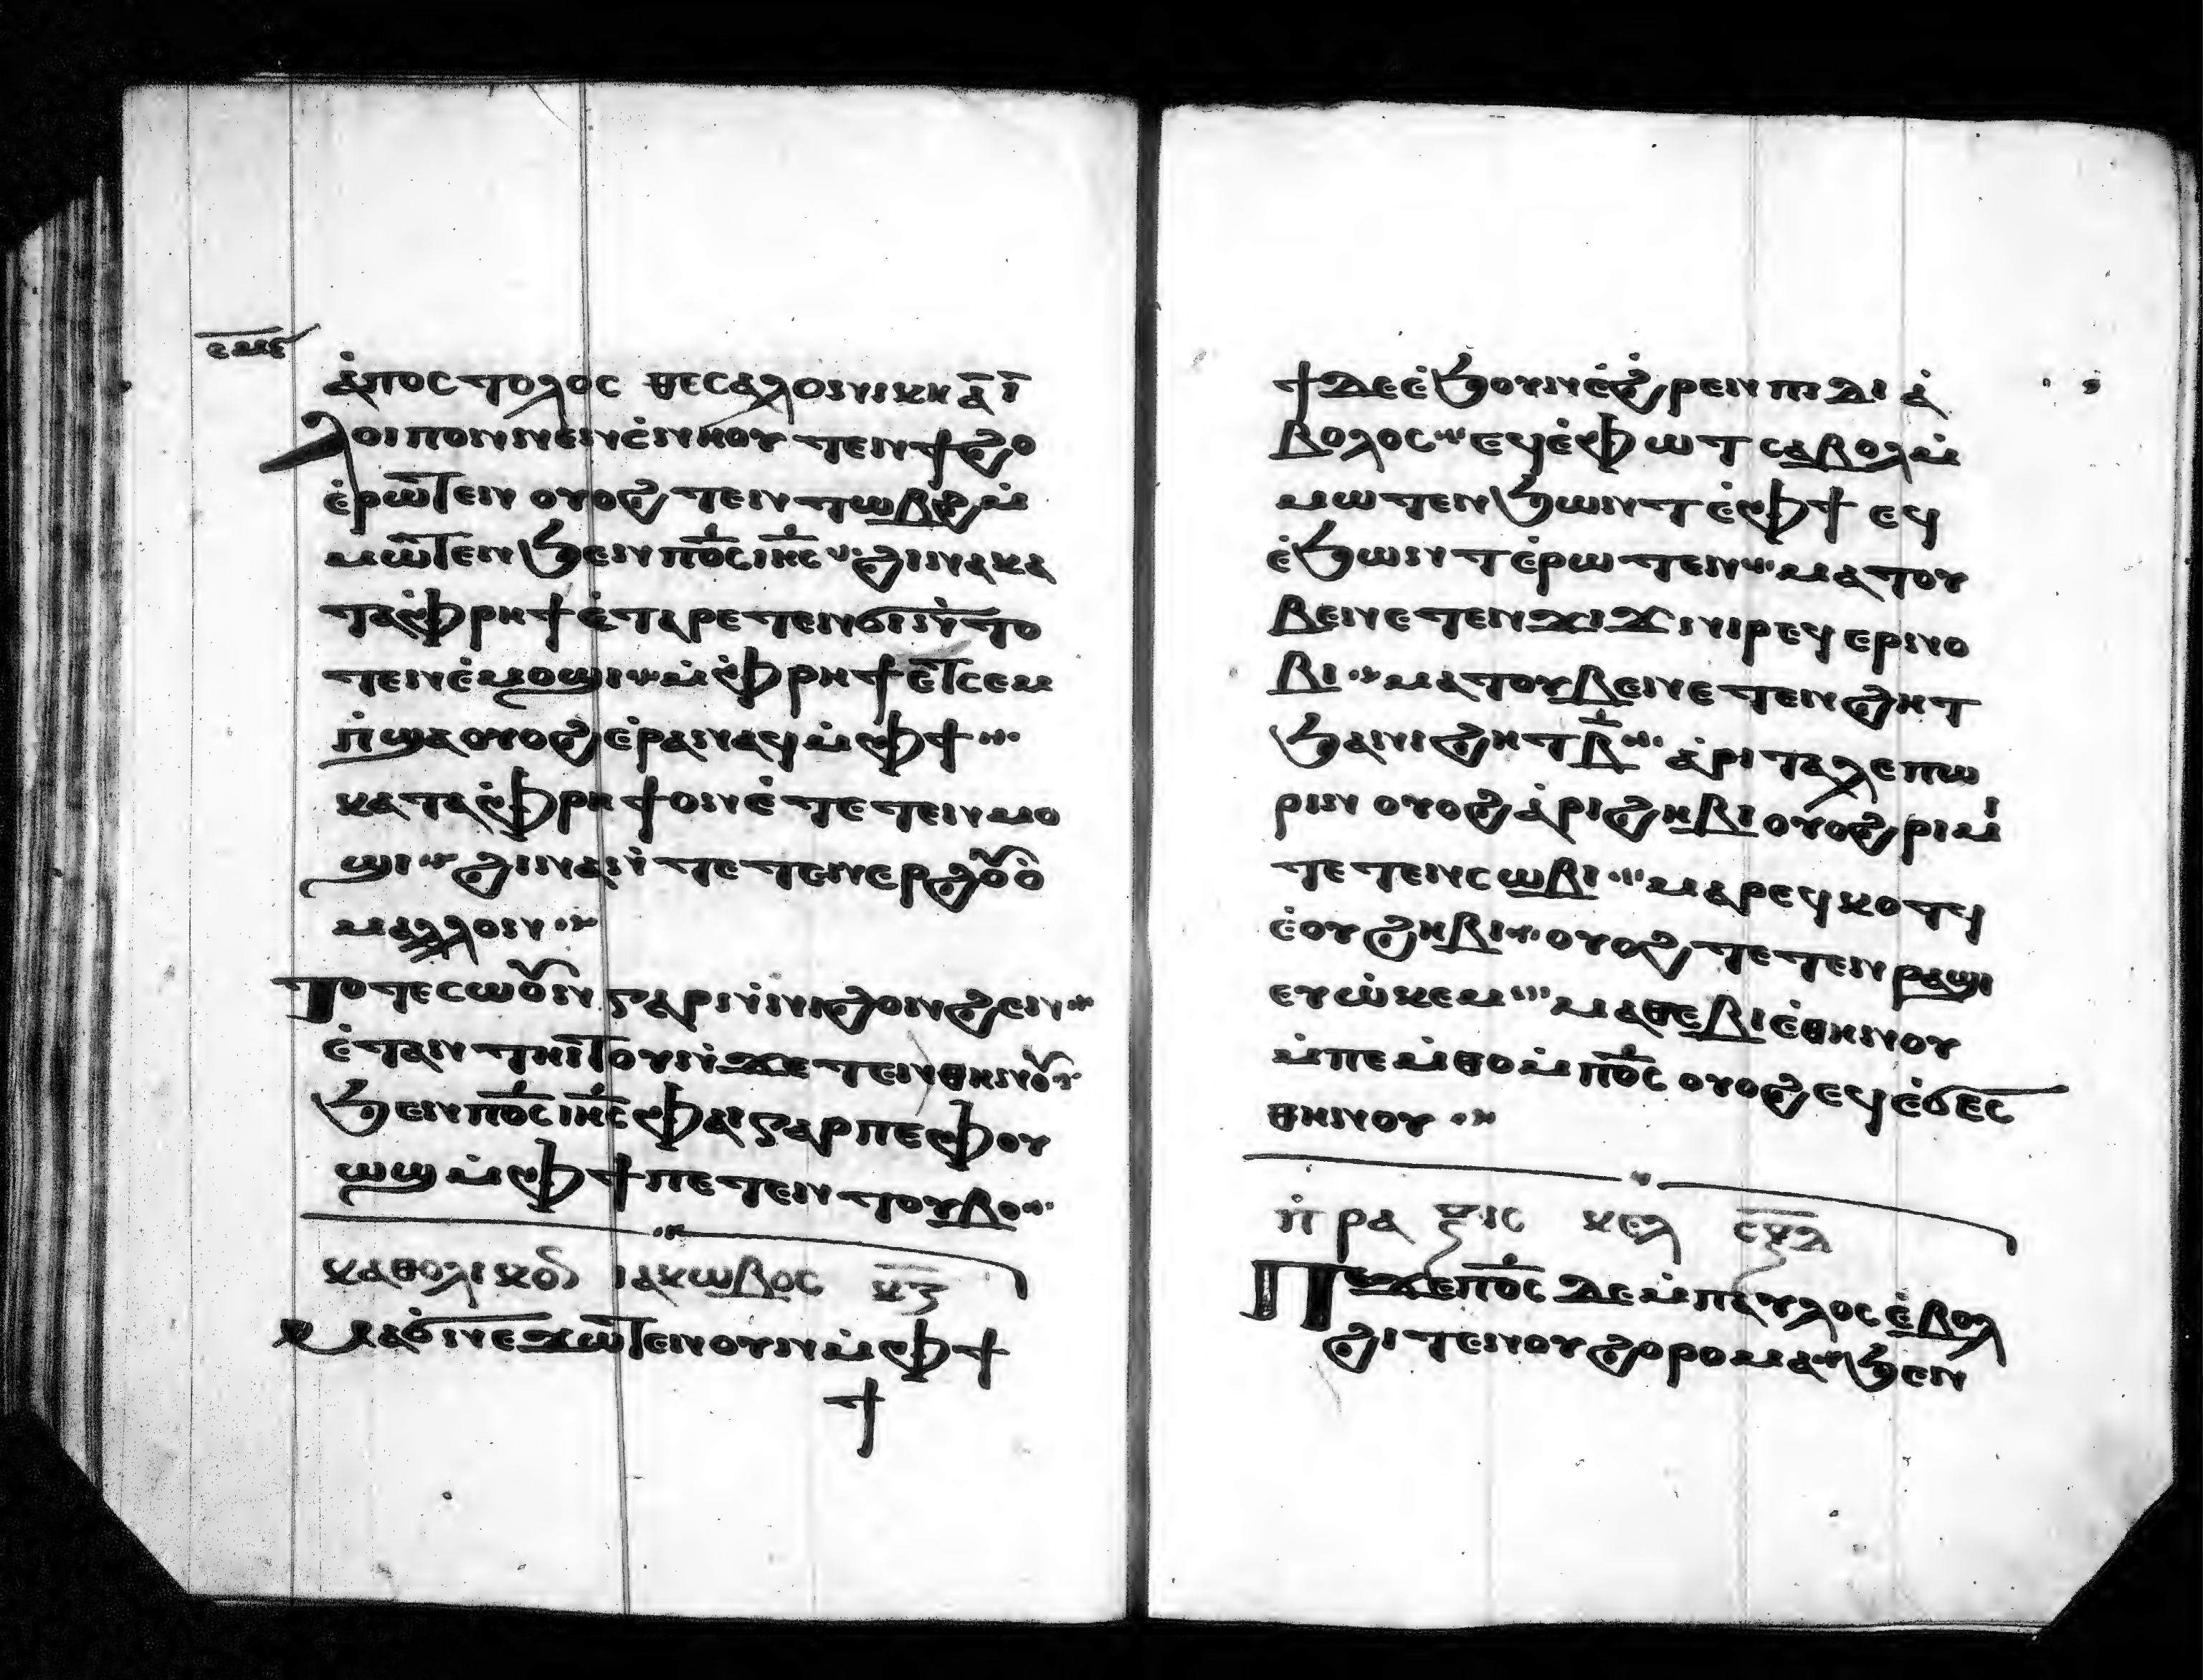 ⲁ̀ⲡⲟⲥⲧⲟⲗⲟⲥ ⲑⲉⲥⲁⲗⲟⲛⲓⲕⲏ ⲁ̅ ⲓ̅
ⲗⲟⲓⲡⲟⲛ ⲛⲉⲛⲥ̀ⲛⲏⲟⲩ ⲧⲉⲛϯϩⲟ
ⲉ̀ⲣⲱⲧⲉⲛ ⲟⲩⲟϩ ⲧⲉⲛⲧⲱⲃϩ ⲙ̀
ⲙⲱⲧⲉⲛ ϧⲉⲛ ⲡⲟ̅ⲥ̅ ⲓⲏ̅ⲥ̅ ϩⲓⲛⲁ ⲕⲁ
ⲧⲁ ⲫ̀ⲣⲏϯ ⲉ̀ⲧⲁⲣⲉⲧⲉⲛϭⲓ ⲛ̀ⲧⲟ
ⲧⲉⲛ ⲉ̀ⲙⲟϣⲓ ⲙ̀ⲫ̀ⲣⲏϯ ⲉⲧⲥⲉⲙ
ⲡ̀ϣⲁ ⲟⲩⲟϩ ⲉ̀ⲣⲁⲛⲁϥ ⲙ̀ⲫϯ
ⲕⲁⲧⲁ ⲫ̀ⲣⲏϯ ⲟⲛ ⲉ̀ⲧⲉⲧⲉⲛⲙⲟ
ϣⲓ ϩⲓⲛⲁ ⲛ̀ⲧⲉⲧⲉⲛⲉⲣϩⲟⲩⲟ̀
ⲙⲁⲗⲗⲟⲛ
ⲧⲟⲧⲉⲥⲱⲟⲩⲛ ⲅⲁⲣ ⲛ̀ⲛⲓϩⲟⲛϩⲉⲛ
ⲉ̀ⲧⲁⲛⲧⲏⲓⲧⲟⲩ ⲛ̀ϫⲉⲧⲉⲛⲑⲏⲛⲟⲩ
ϧⲉⲛ ⲡⲟ̅ⲥ̅ ⲓⲏ̅ⲥ̅ ⲫⲁⲓ ⲅⲁⲣ ⲡⲉ ⲫⲟⲩ
ⲱϣ ⲙ̀ⲫϯ ⲡⲉⲧⲉⲛⲧⲟⲩⲃⲟ
ⲕⲁⲑⲟⲗⲓⲕⲟⲛ ⲓⲁⲕⲱⲃⲟⲥ ⲕ̅ⲍ̅
ⲙⲁϭⲛⲉϫⲱⲧⲉⲛ ⲟⲩⲛ ⲙ̀ⲫϯ
ϯ
ϯ ⲇⲉ ⲉ̀ϧⲟⲩⲛ ⲉ̀ϩⲣⲉⲛ ⲡⲓⲇⲓⲁ̀
ⲃⲟⲗⲟⲥ ⲉϥⲉ̀ⲫⲱⲧ ⲥⲁⲃⲟⲗ ⲙ̀
ⲙⲱⲧⲉⲛ ϧⲱⲛⲧ ⲉ̀ⲫϯ ⲉϥ
ⲉ̀ϧⲱⲛⲧ ⲉ̀ⲣⲱⲧⲉⲛ ⲙⲁⲧⲟⲩ
ⲃⲉ ⲛⲉⲧⲉⲛϫⲓϫ ⲛⲓⲣⲉϥⲉⲣⲛⲟ
ⲃⲓ ⲙⲁⲧⲟⲩⲃⲉ ⲛⲉⲧⲉⲛϩⲏⲧ
ϧⲁ ⲛⲓϩⲏⲧ ⲃ̅ ⲁ̀ⲣⲓⲧⲁⲗⲉⲡⲱ
ⲣⲓⲛ ⲟⲩⲟϩ ⲁ̀ⲣⲓϩⲏⲃⲓ ⲟⲩⲟϩ ⲣⲓⲙⲓ
ⲧⲉⲧⲉⲛⲥⲱⲃⲓ ⲙⲁⲣⲉϥⲕⲟⲧϥ
ⲉ̀ⲟⲩϩⲏⲃⲓ ⲟⲩⲟϩ ⲧⲉⲧⲉⲛⲣⲁϣⲓ
ⲉⲩⲱ̀ⲕⲉⲙ ⲙⲁⲑⲉⲃⲓⲉ̀ⲑⲏⲛⲟⲩ
ⲙ̀ⲡⲉⲙ̀ⲑⲟ ⲙ̀ⲡⲟ̅ⲥ̅ ⲟⲩⲟϩ ⲉϥⲉ̀ϭⲉⲥ
ⲑⲏⲛⲟⲩ
ⲡ̀ⲣⲁⲝⲓⲥ ⲕⲉⲗ ⲥ̅ⲝ̅ⲗ̅
ⲡⲉϫⲉ ⲡⲟ̅ⲥ̅ ⲇⲉ ⲙ̀ⲡⲁⲩⲗⲟⲥ ⲉ̀ⲃⲟⲗ
ϩⲓⲧⲉⲛ ⲟⲩϩⲟⲣⲟⲙⲁ ϧⲉⲛ